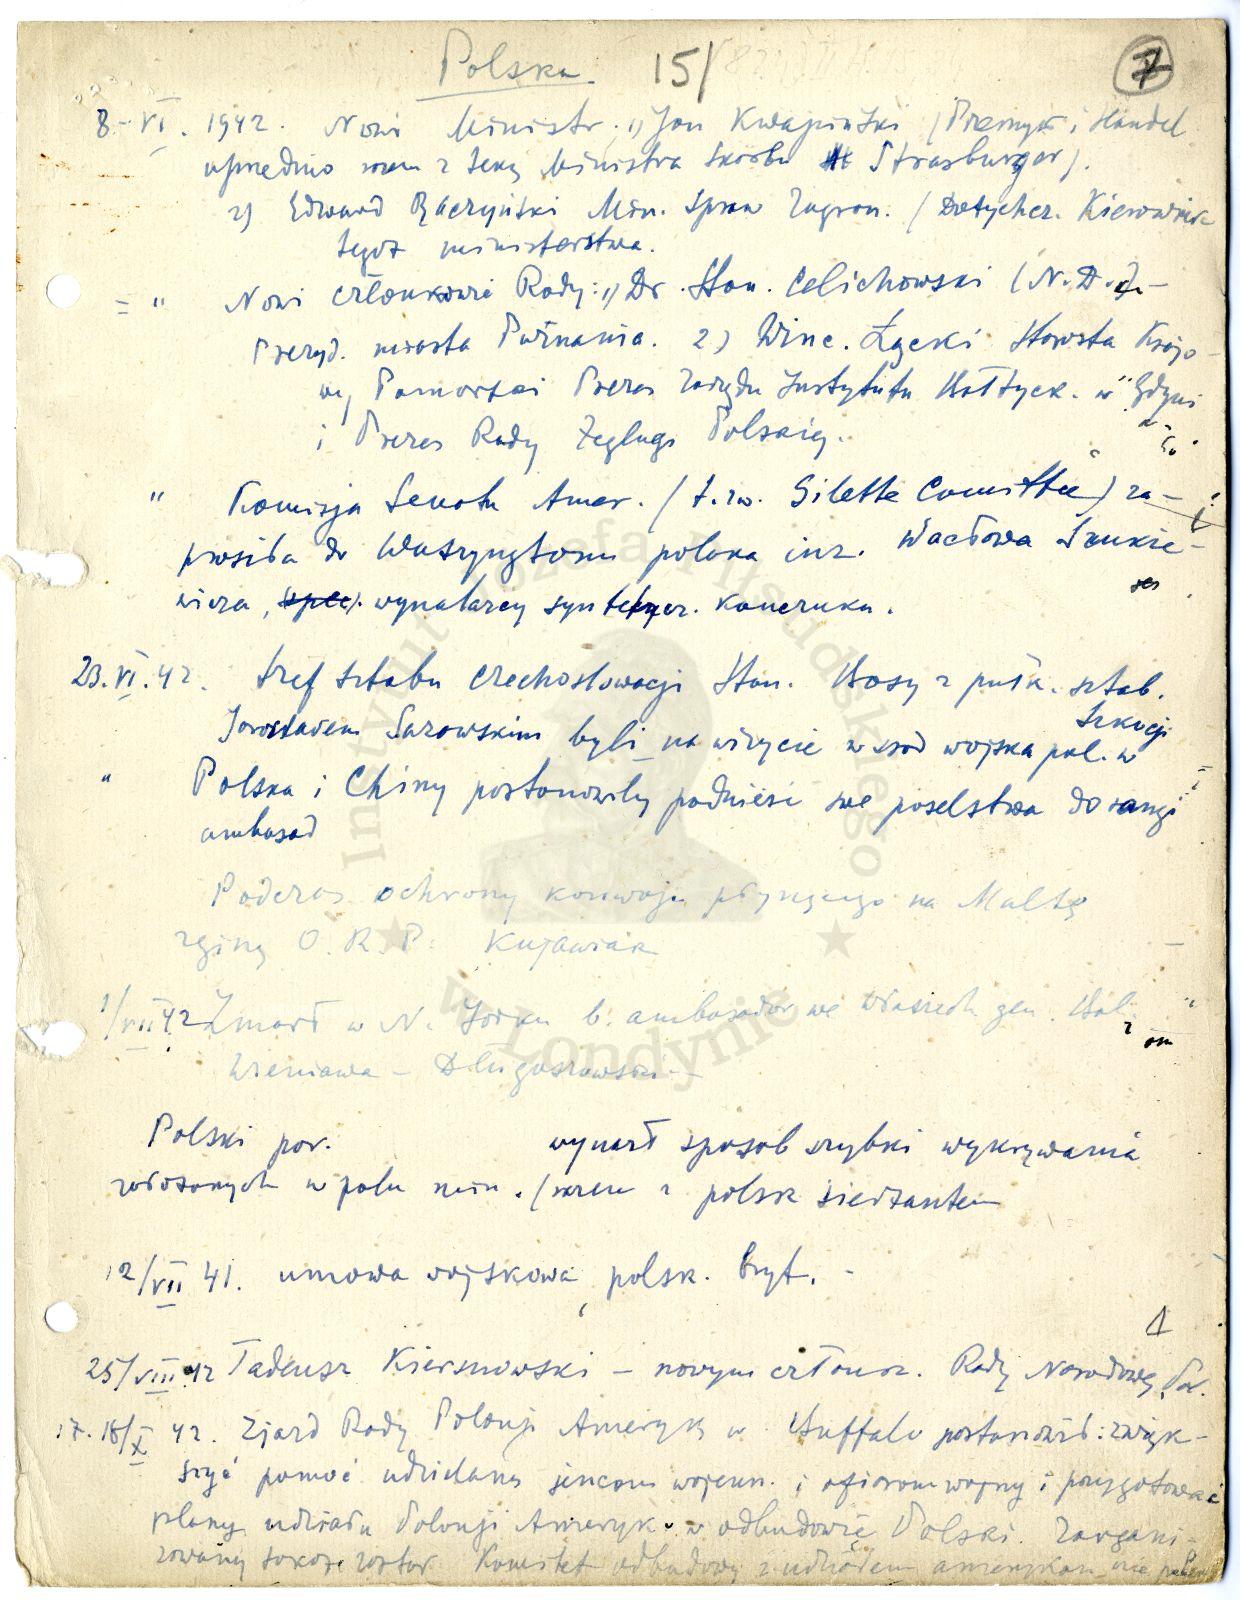 Polska 15/ 7
8-VI. 1942. Nowi Ministr. 1) Jan Kwapiński (Przemysł i Handel
uprzednio razem z teką Ministra Skarbu Strasburger).
2) Edward Raczyński Min. Spraw Zagran. (Dotychcz. Kierownik
tegoż ministerstwa.
= " Nowi członkowie Rady: 1) Dr. Stan. Celichowski (N.D.)
Prezyd. miasta Poznania. 2) Winc. Łącki Starosta Krajo-
wy Pomorski Prezes Zarządu Instytutu Bałtyck. w Gdyni
i Prezes Rady Żeglugi Polskiej.
" Komisja Senatu Amer. (t.zw. Gilette Comittee) za-
prosiła do Waszyngtonu polaka inż. Wacława Szukie-
wicza, wynalazcy syntetycz. kauczuku.
23.VI.42. Szef sztabu Czechosłowacji Stan. Bosy z pułk. sztab.
Jarosławem Sazowskim byli na wizycie wśród wojska pol. w Szkocji
" Polska i Chiny postanowiły podnieść swe poselstwa do rangi
ambasad
Podczas ochrony konwoju płynącego na Maltę
zginą O.R.P. Kujawiak
1/VII 42 Zmarł w N. Jorku b. ambasador we Włoszech gen. Bol.
Wieniawa-Długoszowski-
Polski por. wynazł sposób szybki wykrywania
założonych w polu min. (razem z polsk sierżantem
12/VII 41. umowa wojskowa polsk. bryt. -
25/VIII 42 Tadeusz Kiersnowski - nowym członk. Rady Narodowej Pol.
17.18/X 42. Zjazd Rady Polonji Ameryk w Buffalo postanowił: zwięk-
szyć pomoc udzielaną jeńcom wojenn. i ofiarom wojny i przygotować
plany udziału Polonji Ameryk. w odbudowie Polski. Zorgani-
zowany został Komitet odbudowy z udziałem amerykan
Instytut Józefa Piłsudskiego
w Londynie